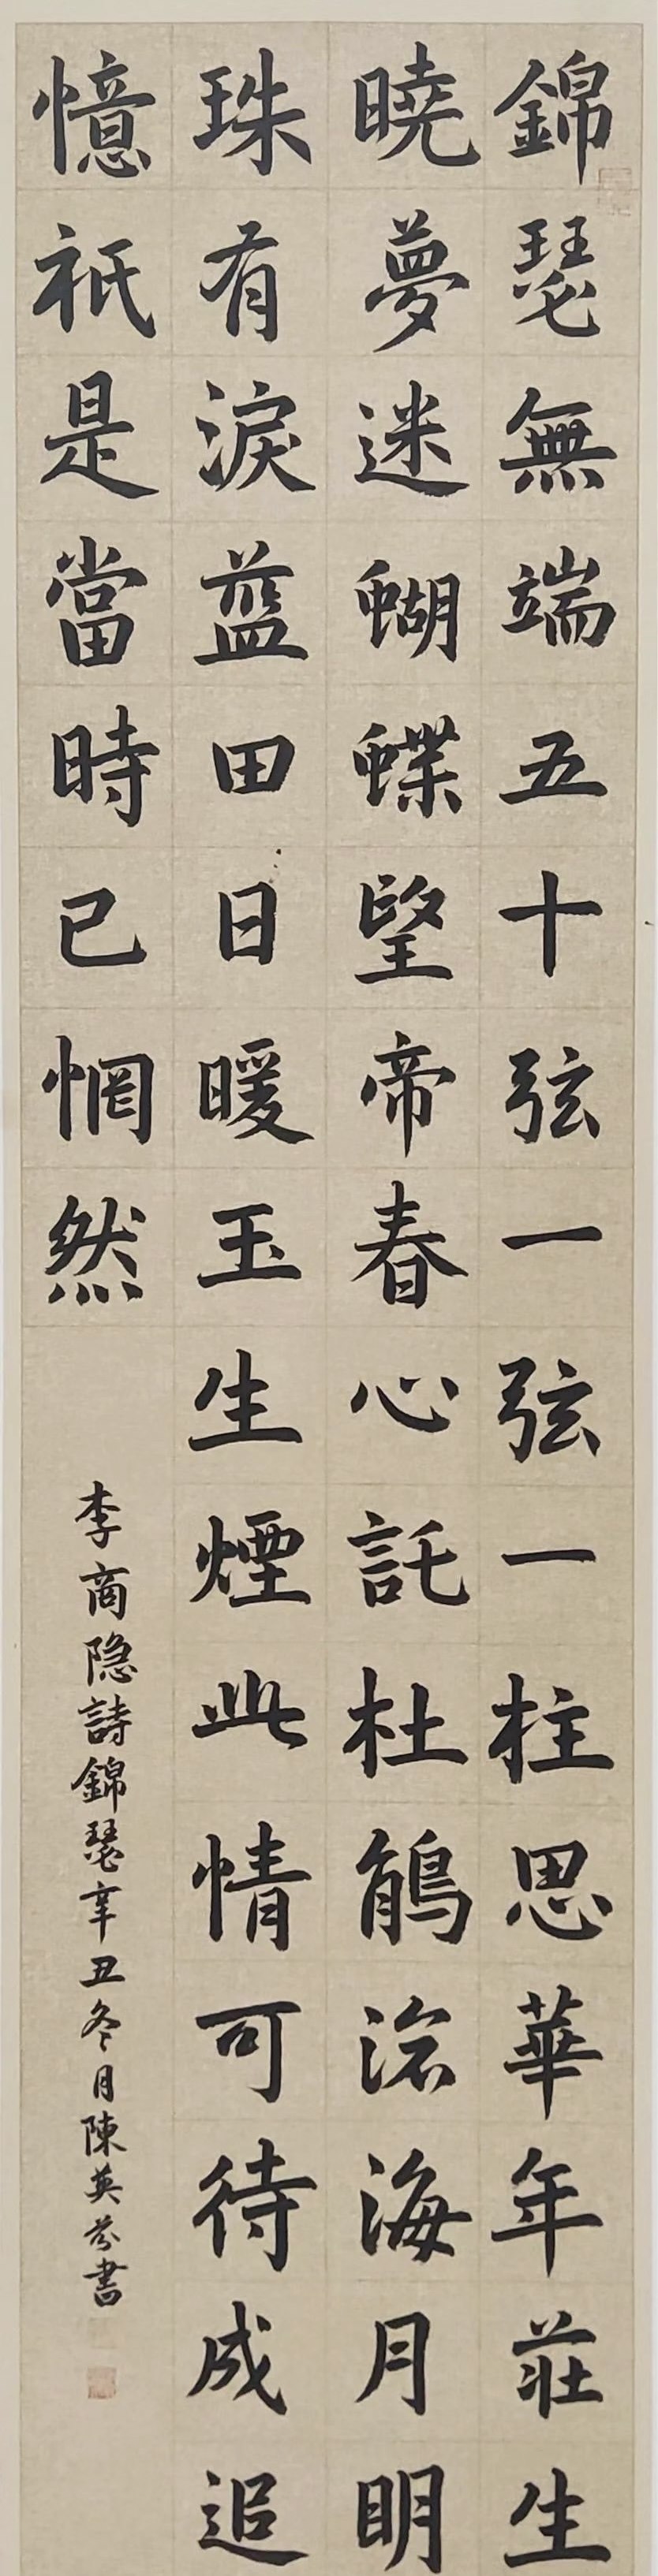 錦瑟無端五十弦一弦一柱思華年莊生
曉夢迷蝴蝶望帝春心託杜鵑滄海月明
珠有淚藍田日暖玉生煙此情可待成追
憶祇是當時已惘然
李商隐詩錦瑟辛丑冬月陳英芬書